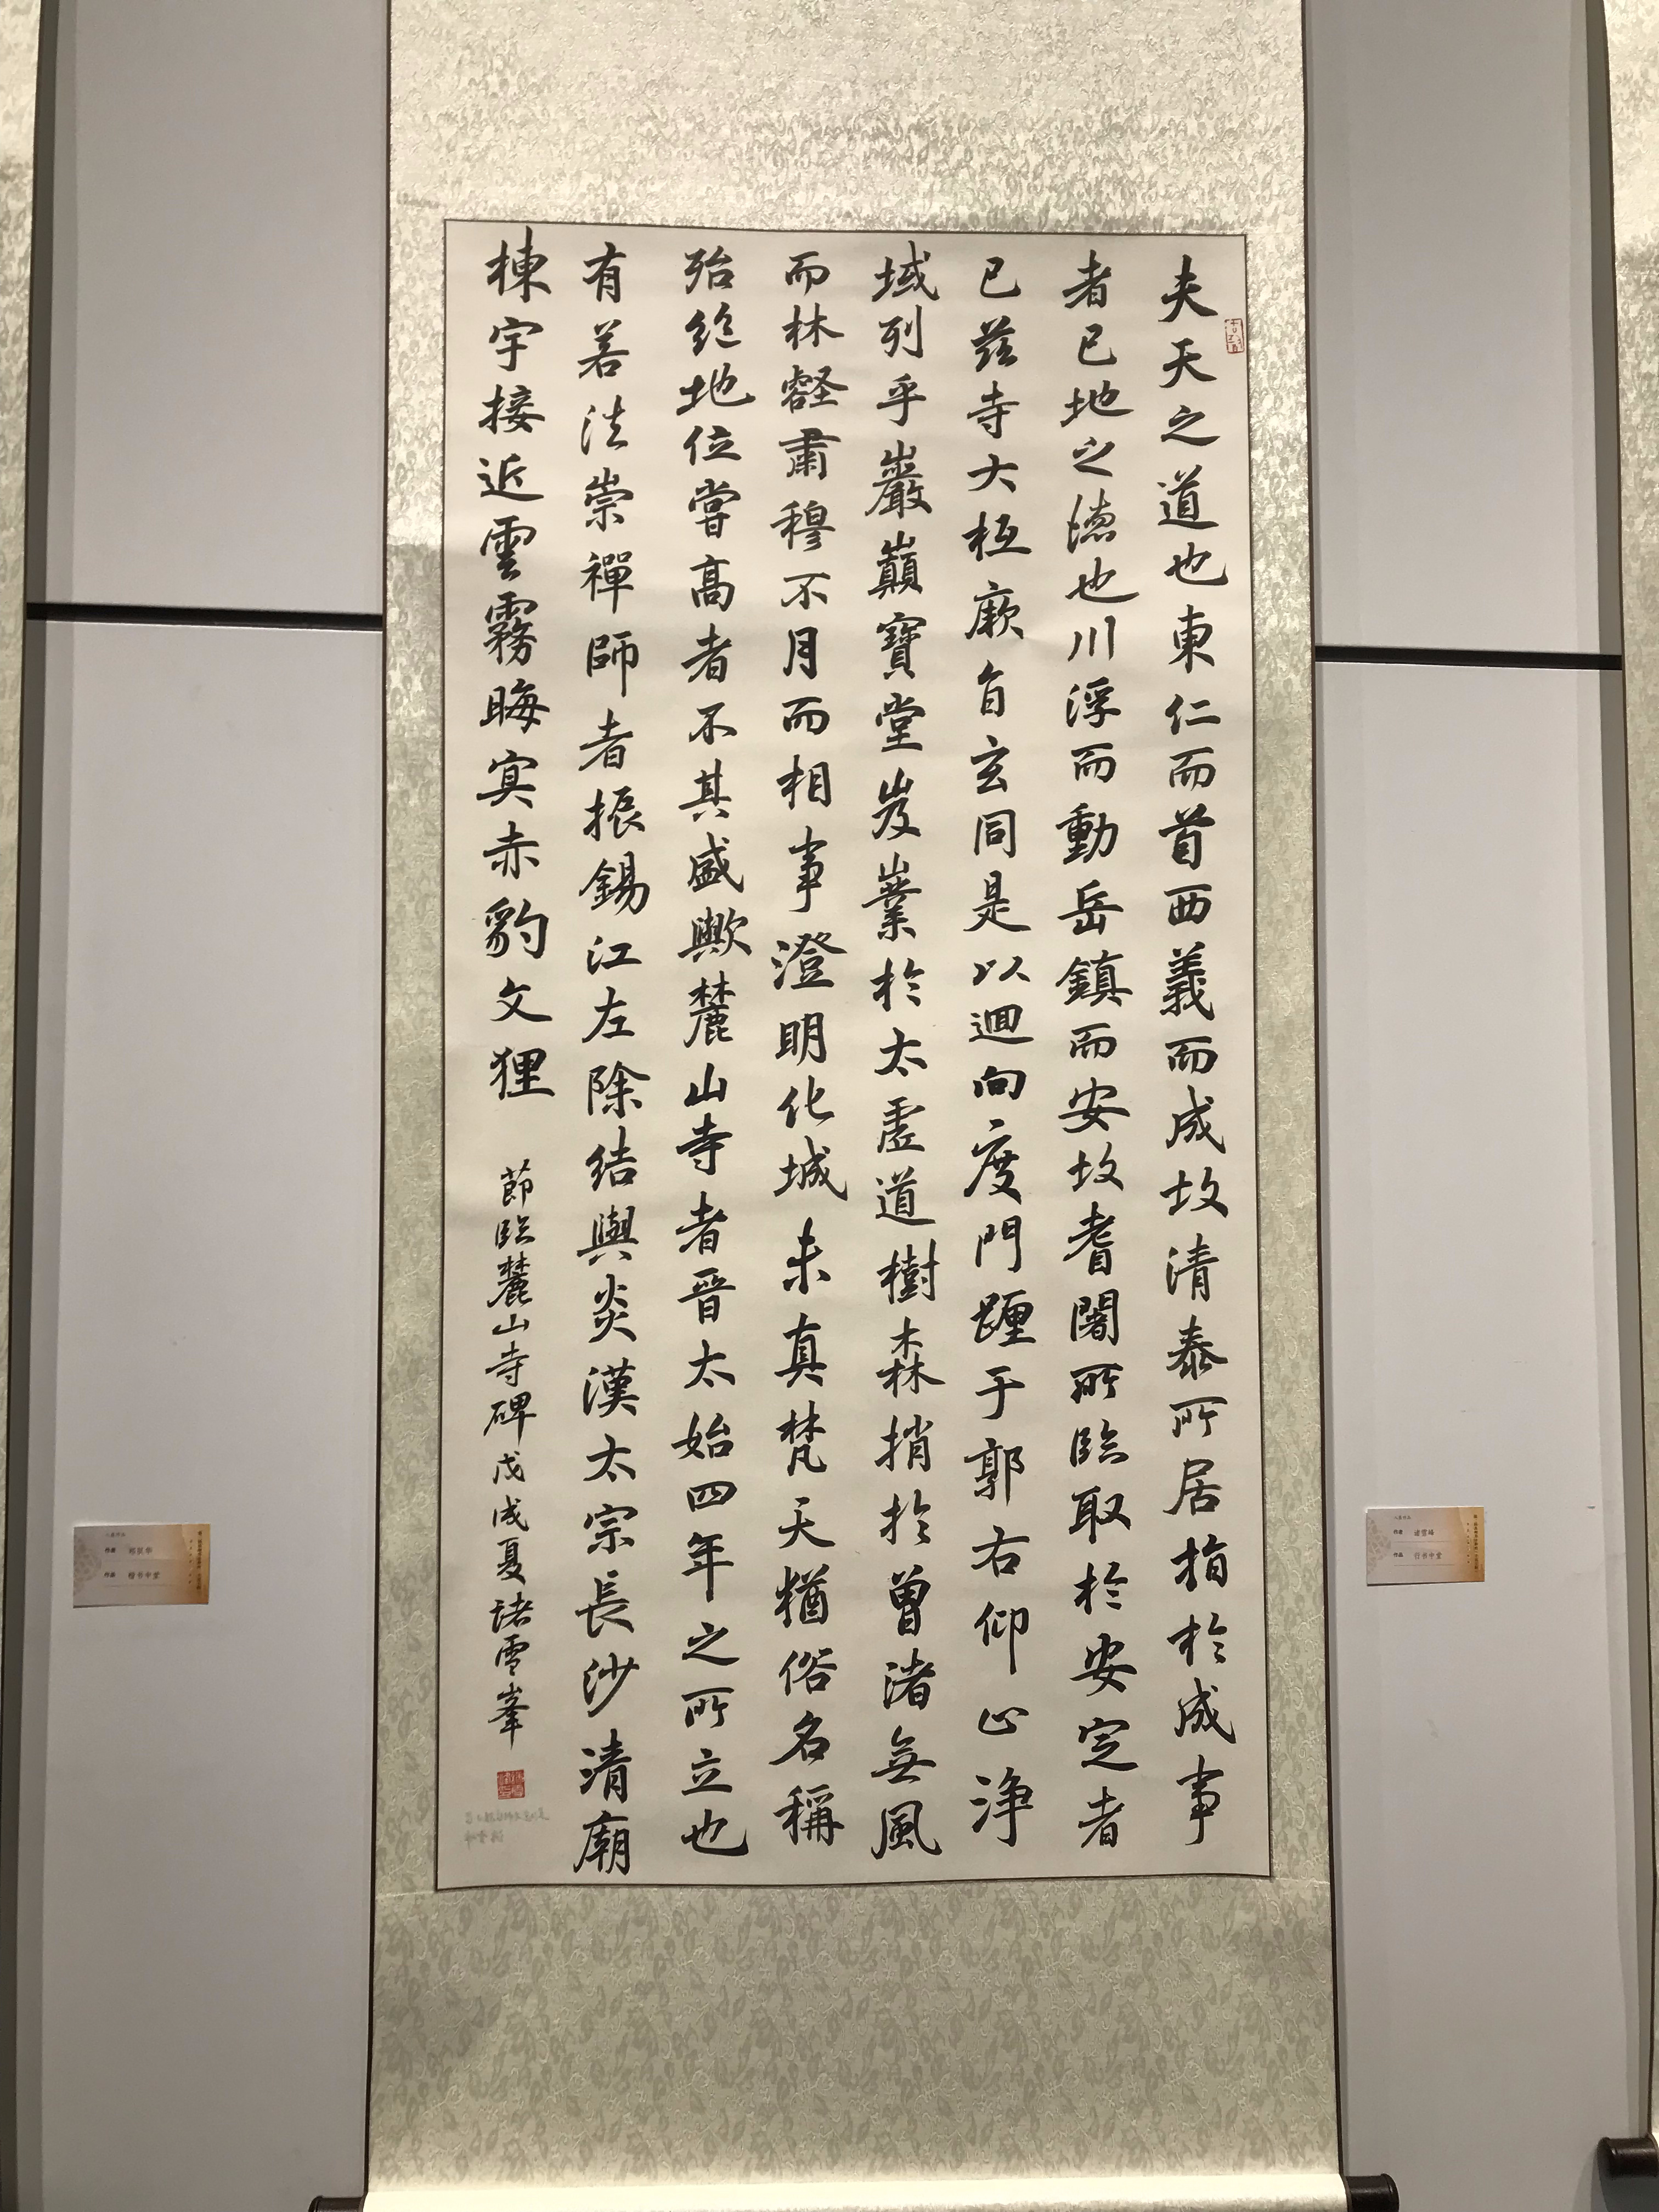 夫天之道也東仁而首西義而成故清泰所居指於成事
者已地之德也川浮而動岳鎮而安故耆闍所臨取於安定者
已茲寺大抵厥旨玄同是以迴向度門踵于郭右仰止淨
域列乎巖巔寶堂岌嶪於太虛道樹森捎於曾渚無風
而林壑肅穆不月而相事澄明化城未真梵天猶俗名稱
殆絕地位嘗高者不其盛歟麓山寺者晉太始四年之所立也
有若法崇禪師者振錫江左除結與炎漢太宗長沙清廟
棟宇接近雲霧晦冥赤豹文狸
節臨麓山寺碑戊戌夏諸雪峯
作者
作品 楷书中堂
作者 诸雪峰
作品 行书中堂